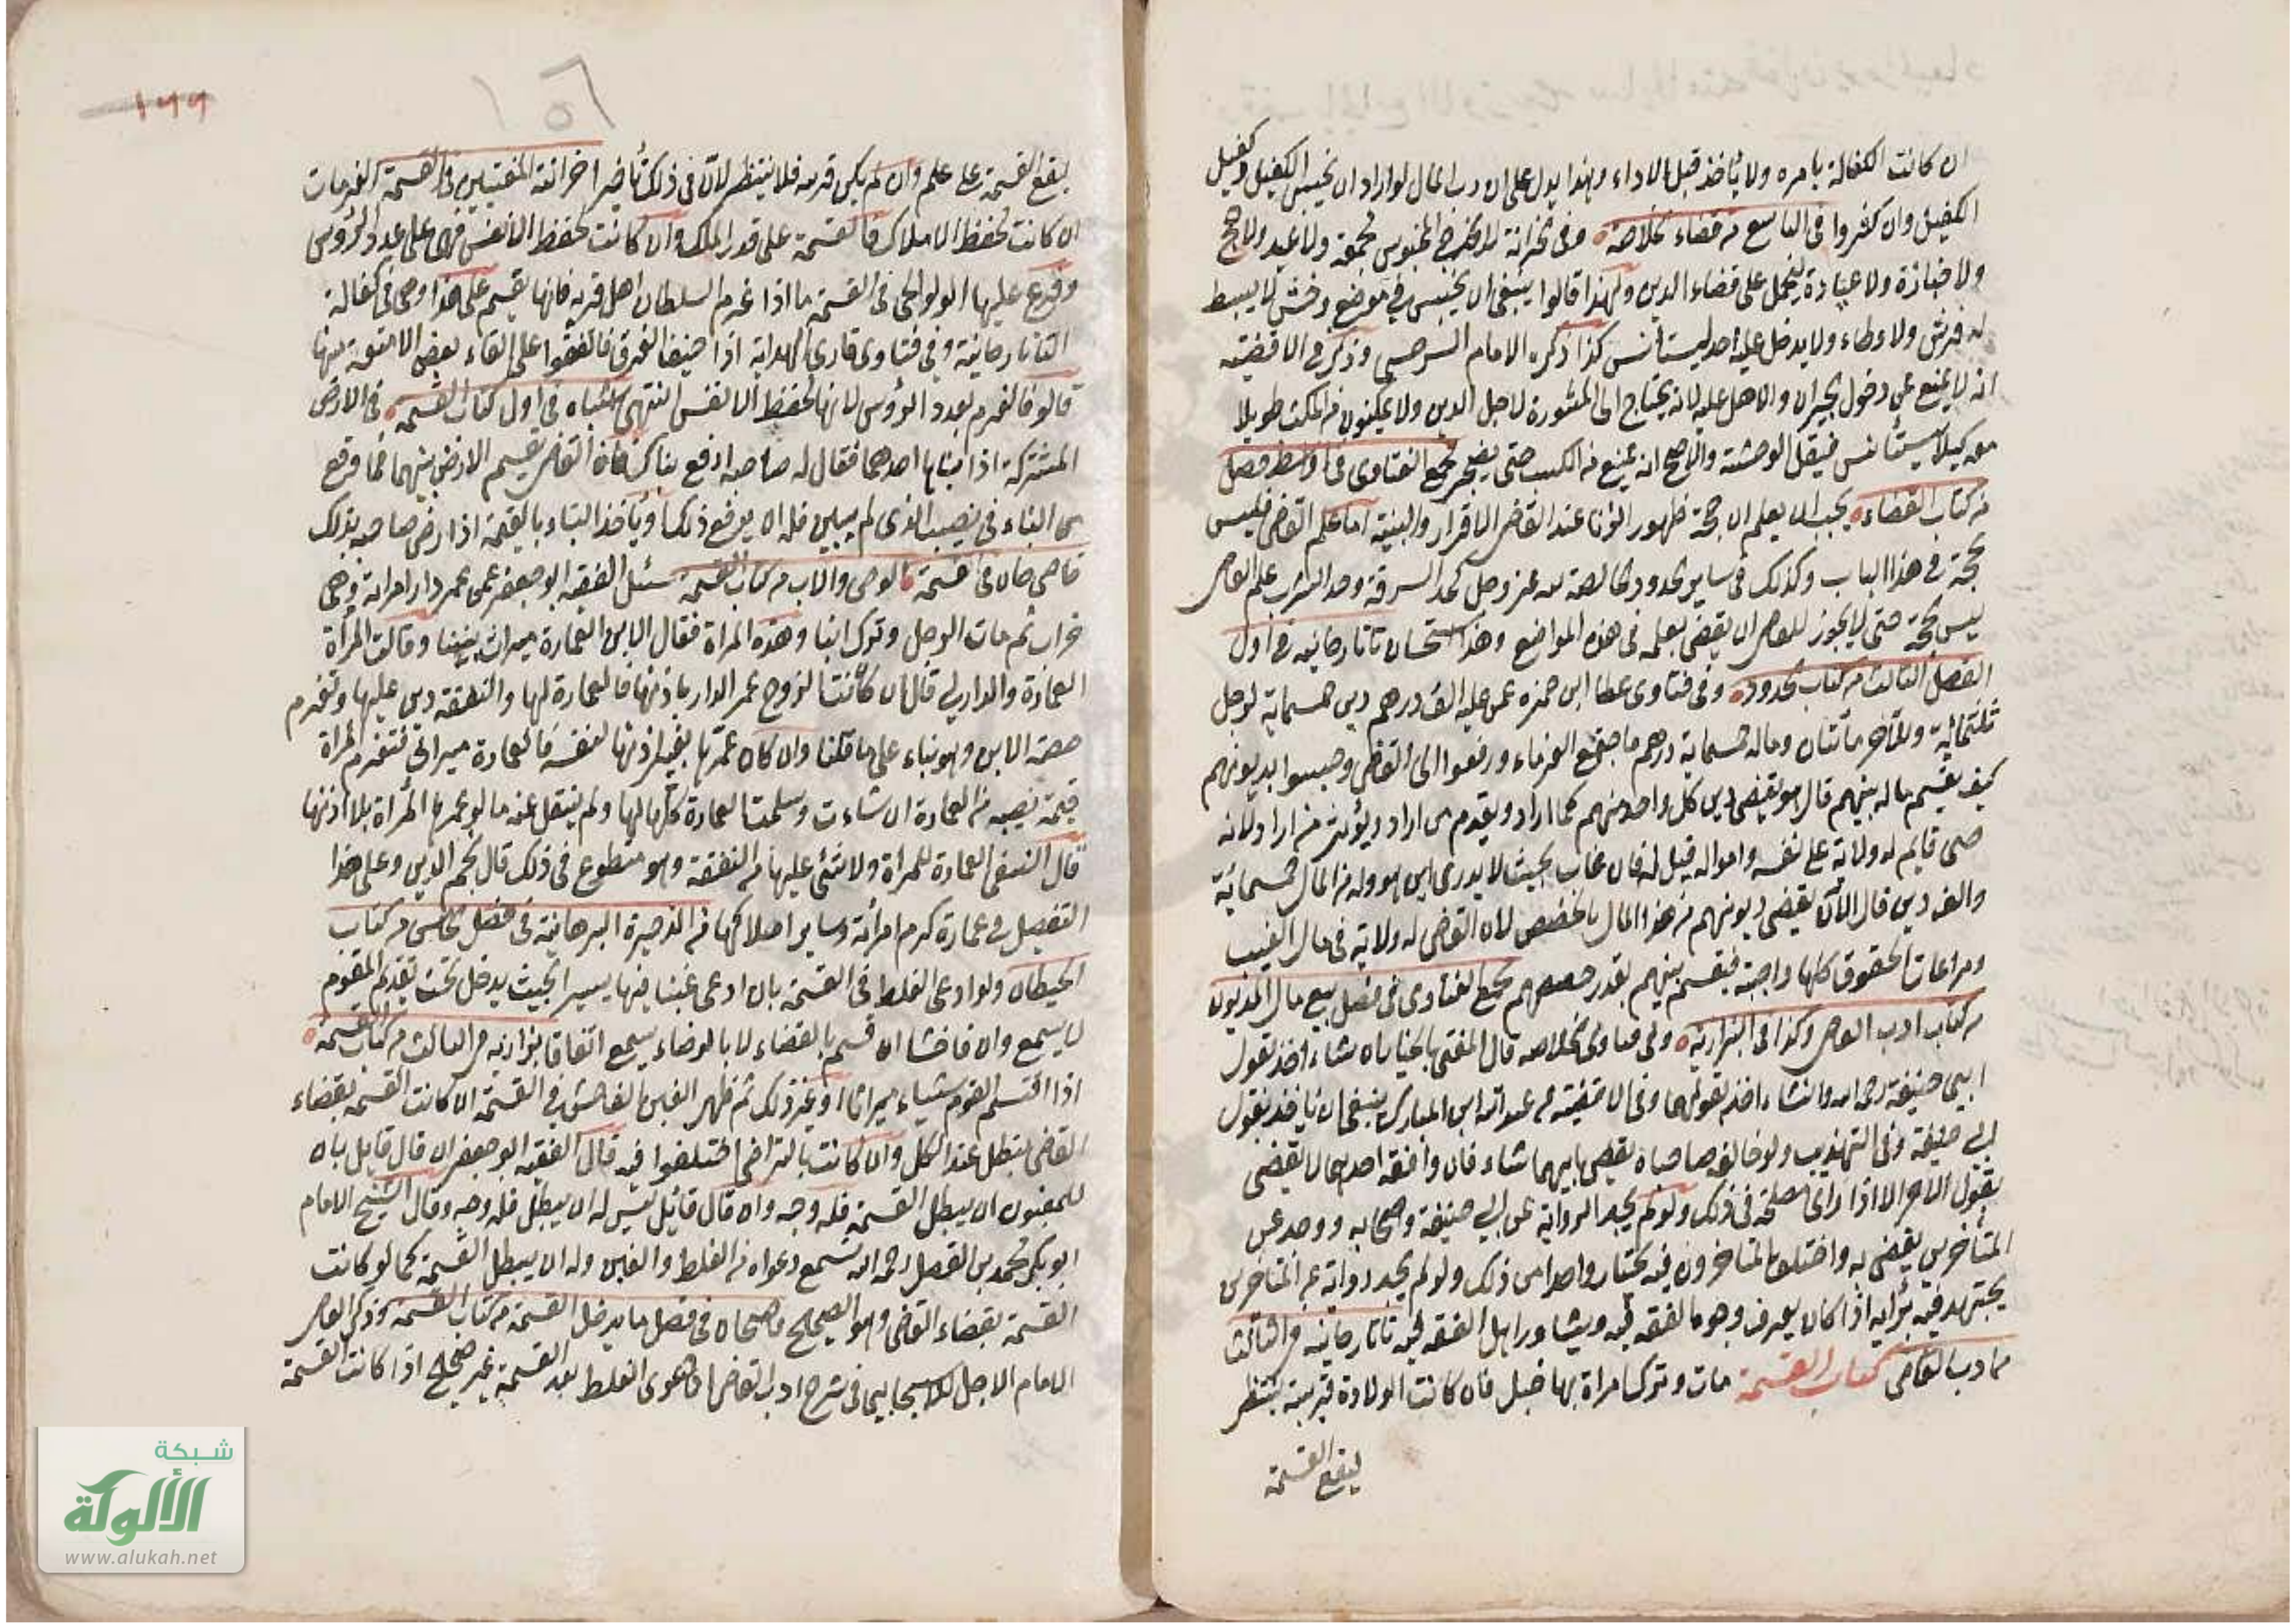 ان كانت الكفالة بامره ولا يأخذ قبل الاداء وهذا يدل على ان رب المال لو اراد ان يحبس الكفيل وكفيل
الكفيل وان كفروا في التاسع من قضاء الخلاصة وفي الخزانة لا يخرج المحبوس لجمعة ولا عيد ولا حج
ولا جنازة ولا عيادة ليحمل على قضاء الدين ولهذا قالوا ينبغي ان يحبس في موضع وخش لا يبسط
له فرش ولا وطاء ولا يدخل عليه احد ليستأنس كذا ذكره الامام السرخسي وذكر في الاقضية
انه لا يمنع عن دخول الجيران والاهل عليه لانه يحتاج الى المشورة لاجل الدين ولا يمكنون من المكث طويلا
معه كيلا يستأنس فيقل الوحشة والاصح انه يمنع من الكسب حتى يضجر مجمع الفتاوى في اواسط فصل
من كتاب القضاء يجب ان يعلم ان حجة ظهور الزنا عند القاضي الاقرار والبينة اما علم القاضي فليس
بحجة في هذا الباب وكذلك في ساير الحدود الخالصة لله عز وجل كحد السرقة وحد الشرب علم القاضي
ليس بحجة حتى لا يجوز للقاضي ان يقضي بعلمه في هذه المواضع وهذا استحسان تاتارخانيه في اول
الفصل الثالث من كتاب الحدود وفي فتاوى عطا ابن حمزه عمن عليه الف درهم دين خمسماية لرجل
ثلثمائة ولآخر مأتان وماله خمسماية درهم فاجتمع الغرماء ورفعوا الى القاضي وحبسوا بديونهم
كيف يقسم ماله بينهم قال هو يقضي دين كل واحد منهم كما اراد ويقدم من اراد ويؤخر من اراد لانه
حي قايم له ولاية على نفسه وامواله قيل له فان غاب بحيث لا يدرى اين هو وله من المال خمسمائة
والف دين قال الآن يقضي ديونهم من هذا المال بالحصص لان القاضي له ولاية في مال الغيب
ومراعات الحقوق كلها واجبة فيقسم بينهم بقدر حصصهم مجمع الفتاوى في فصل بيع مال المديون
من كتاب ادب القاضي وكذا في البزازية وفي فتاوى الخلاصه قال المفتي بالخيار ان شاء اخذ بقول
ابي حنيفة رحمه الله وان شاء اخذ بقولهما وفي الاقضية عن عبد الله ابن المبارك ينبغي ان ياخذ بقول
ابي حنيفة وفي التهذيب ولو خالفه صاحباه يقضي بايهما شاء فان وافقه احدهما لا يقضي
بقول الآخر الا اذا رأى مصلحة في ذلك ولو لم يجد الرواية عن ابي حنيفة واصحابه ووجد عن
المتأخرين يقضي به واختلف المتاخرون فيه يختار واحدا من ذلك ولو لم يجد رواية عن المتاخرين
يجتهد فيه برأيه اذا كان يعرف وجوه الفقه فيه ويشاور اهل الفقه فيه تاتارخانيه في الثالث
من ادب القاضي كتاب القسمة مات وترك امراة بها حبل فان كانت الولادة قريبة ينتظر
ليقع القسمة
١٥٦
١٩٩
ليقع القسمة على علم وان لم يكن قريبه فلا ينتظر لان في ذلك تأخيرا خزانة المفتيين في القسمة الغرمات
ان كانت لحفظ الاملاك فالقسمة على قدر الملك وان كانت لحفظ الانفس فهي على عدد الرؤوس
وفرع عليها الولوالجي في القسمة ما اذا غرم السلطان اهل قريه فانها يقسم على هذا وهي في كفالة
التاتارخانية وفي فتاوى قاري الهداية اذا خيف الغرق فاتفقوا على القاء بعض الامتعة منها
فالقوا فالغرم بعدد الرؤوس لانها لحفظ الانفس انتهى اشباه في اول كتاب القسمه في الارض
المشتركة اذا بناها احدهما فقال له صاحبه ارفع بناءك فان القاضي يقسم الارض بينهما فما وقع
من البناء في نصيب الذي لم يبين فله ان يرفع ذلك او يأخذ البناء بالقيمة اذا رضي صاحبه بذلك
قاضيخان في قسمة الوصي والاب من كتاب القسمة سئل الفقيه ابو جعفر عمن عمر دار امراته وهي
خراب ثم مات الرجل وترك ابنا وهذه المراة فقال الابن العمارة ميراث بيننا وقالت المرأة
العمارة والدار لي قال ان كانت الزوج عمر الدار باذنها فالعمارة لها والنفقة دين عليها وتغرم
حصة الابن وهو بناء على ما قلنا وان كان عمرها بغير اذنها لنفسه فالعمارة ميراث فتغرم المراة
قيمة نصيبه من العمارة ان شاءت وسلمت العمارة كلها لها ولم ينقل عنه ما لو عمرها المراة بلا اذنها
قال النسفي العمارة للمراة ولا شئ عليها من النفقة وهو متطوع في ذلك قال نجم الدين وعلى هذا
التفصيل في عمارة كرم امرأته وساير املاكها من الذخيرة البرهانية في فصل الخامس من كتاب
الحيطان ولو ادعى الغلط في القسمة بان ادعى غبنا فيها يسيرا بحيث يدخل تحت تقديم المقوم
لا يسمع وان فاحشا ان قسم بالقضاء لا بالرضاء يسمع اتفاقا بزازية في الثالث من كتاب القسمة
اذا اقتسم القوم شيئا ميراثا او غير ذلك ثم ظهر الغبن الفاحش في القسمة ان كانت القسمة بقضاء
القاضي تبطل عند الكل وان كانت بالتراضي اختلفوا فيه قال الفقيه ابو جعفر ان قال قايل بان
للمغبون ان يبطل القسمة فله وجه وان قال قائل ليس له ان يبطل فله وجه وقال الشيخ الامام
ابو بكر محمد بن الفضل رحمه الله تسمع دعواه في الغلط والغبن وله ان يبطل القسمة كما لو كانت
القسمة بقضاء القاضي وهو الصحيح قاضيخان في فصل ما يدخل القسمة من كتاب القسمة وذكر القاضي
الامام الاجل الاسبيجابي في شرح ادب القاضي ان دعوى الغلط بعد القسمة غير صحيح اذا كانت القسمة
شبكة
الألوكة
www.alukah.net